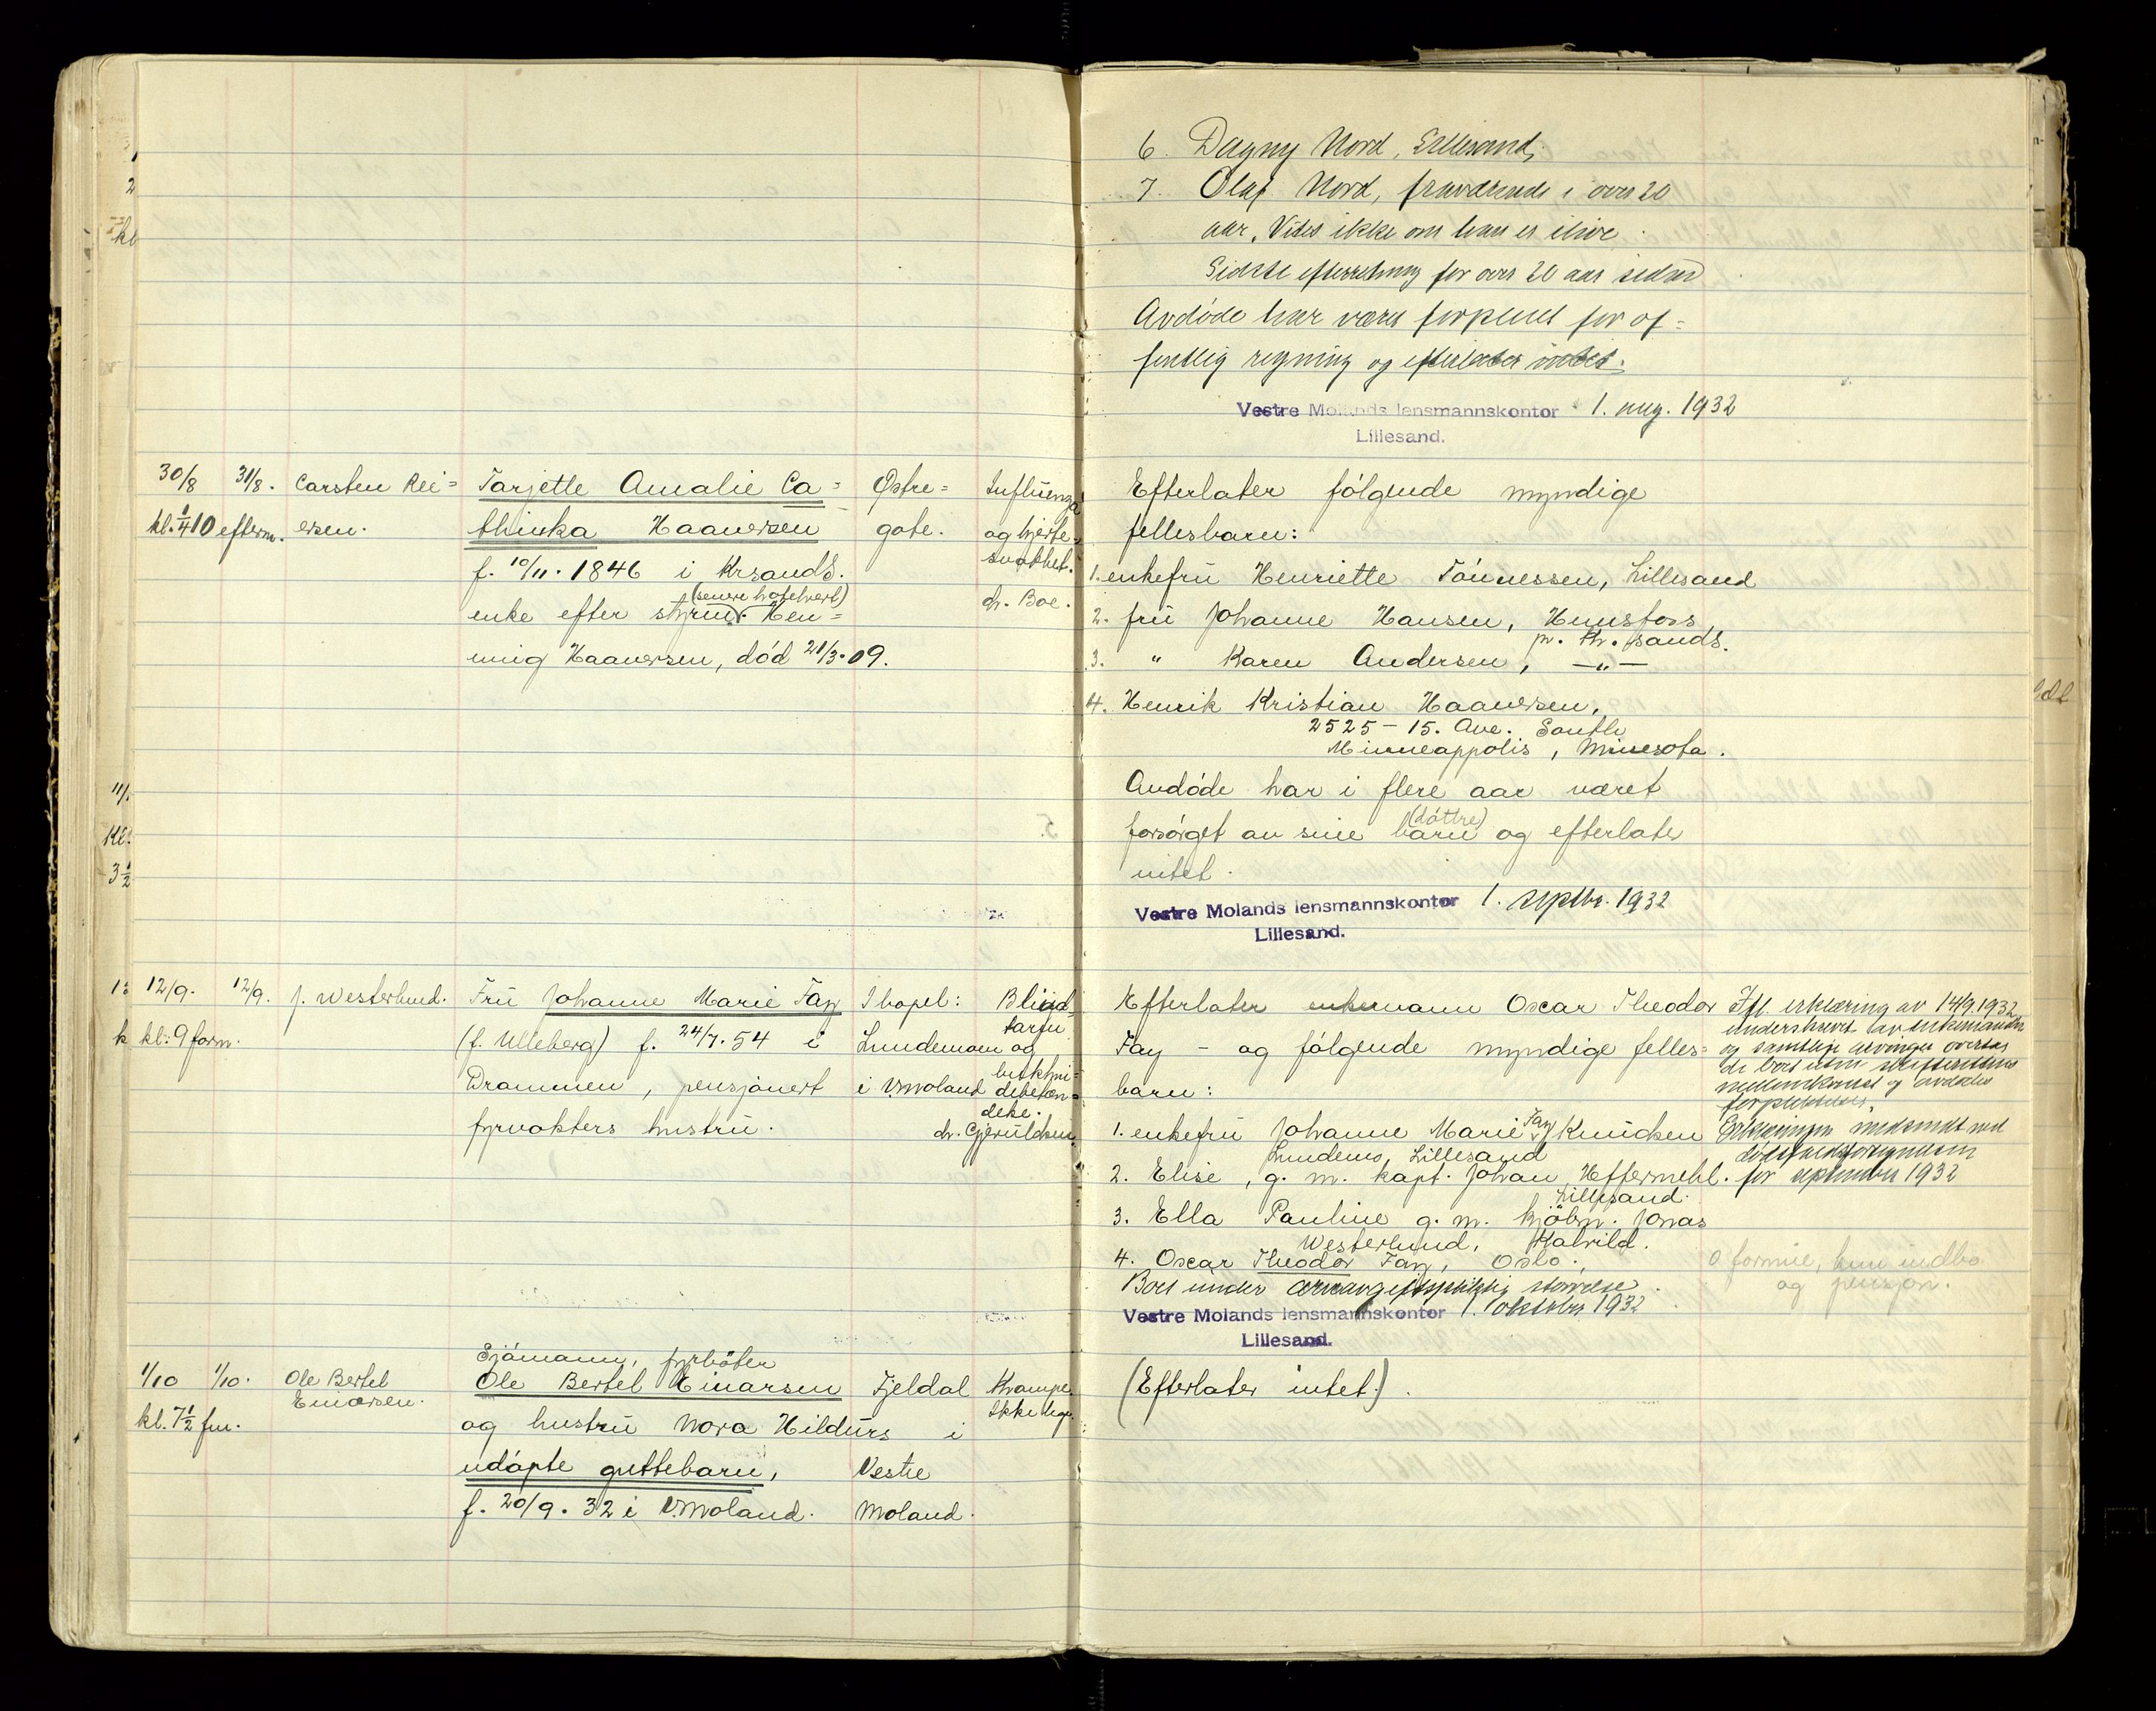 6. Dagny Nord, Lillesand,
7. Olaf Nord, fraværende i over 20
aar. Vides ikke om han er ilive.
Sidste efterretning for over 20 aar siden
Avdøde har været forpleiet for of=
fentlig regning og efterlater intet.
Vestre Molands lensmannskontor 1. aug. 1932
Lillesand.
30/8 31/8. Carsten Rei=
kl. 1/4 10 efterm. ersen.
Tarjette Amalie Ca=
thinka Haaversen
f. 10/11. 1846 i Krsands.
(senere hotelvert)
enke efter styrm. Hen=
nig Haaversen, død 21/3. 09.
Østre=
gate.
Influenza
og hjerte=
svakhet.
dr. Boe.
Efterlater følgende myndige
fellesbarn:
1. enkefru Henriette Tønnessen, Lillesand
2. fru Johanne Hansen, Hunsfoss,
pr. Kr.sands.
3. " Karen Andersen, —"—
4. Henrik Kristian Haaversen,
2525 - 15. Ave. South
Minneappolis, Minesota.
Avdøde har i flere aar været
(døttre)
forsørget av sine barn og efterlater
intet.
Vestre Molands lensmannskontor 1. septbr. 1932
Lillesand.
12/9. 12/9. J. Westerlund.
kl: 9 form.
Fru Johanne Marie Fay
(f. Ulleberg) f. 24/7. 54 i
Drammen, pensjonert
fyrvokters hustru.
I bopel:
Lundemoen
i V. Moland
Blind=
tarm
og
bukhin=
debeten=
delse.
dr. Gjeruldsen.
Efterlater enkemann Oscar Theodor
Fay - og følgende myndige felles=
barn:
1. enkefru Johanne Marie Fay Knudsen
Lundemo, Lillesand
2. Elise, g. m. kapt. Johan Heffermehl.
Lillesand.
3. Ella Pauline g. m. kjøbm. Jonas
Westerlund, Kalvild.
4. Oscar Theodor Fay, Oslo.
Boet under størrelse
Vestre Molands lensmannskontor 1. oktober 1932
Lillesand.
Ifl. erklæring av 14/9.1932
underskrevet av enkemanden
og samtlige arvinger overtas
de boet uten skifterettens
mellemkomst og avdødes
forpliktelser.
Erklæringen indsendt med
dødsfaldsfortegnelsen
for september 1932
0 formue, kun indbo
og pensjon.
1/10 1/10. Ole Bertel
Einarsen.
kl. 7 1/2 fm.
Sjømann, fyrbøter
Ole Bertel Einarsen
og hustru Nora Hildurs
udøpte guttebarn,
f. 20/9. 32 i V. Moland.
Fjeldal
i
Vestre
Moland.
Krampe.
Ikke lege.
(Efterlater intet.)